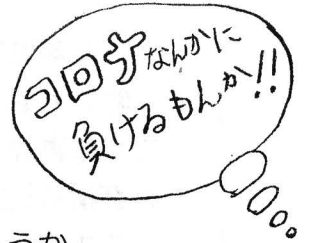 コロナなんかに
負けるもんか!!
うか